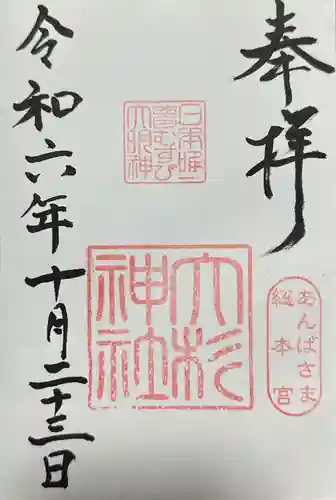 奉拝
日本唯一
夢むすび
大明神
大杉
神社
あんばさま
総本宮
令和六年十月二十三日